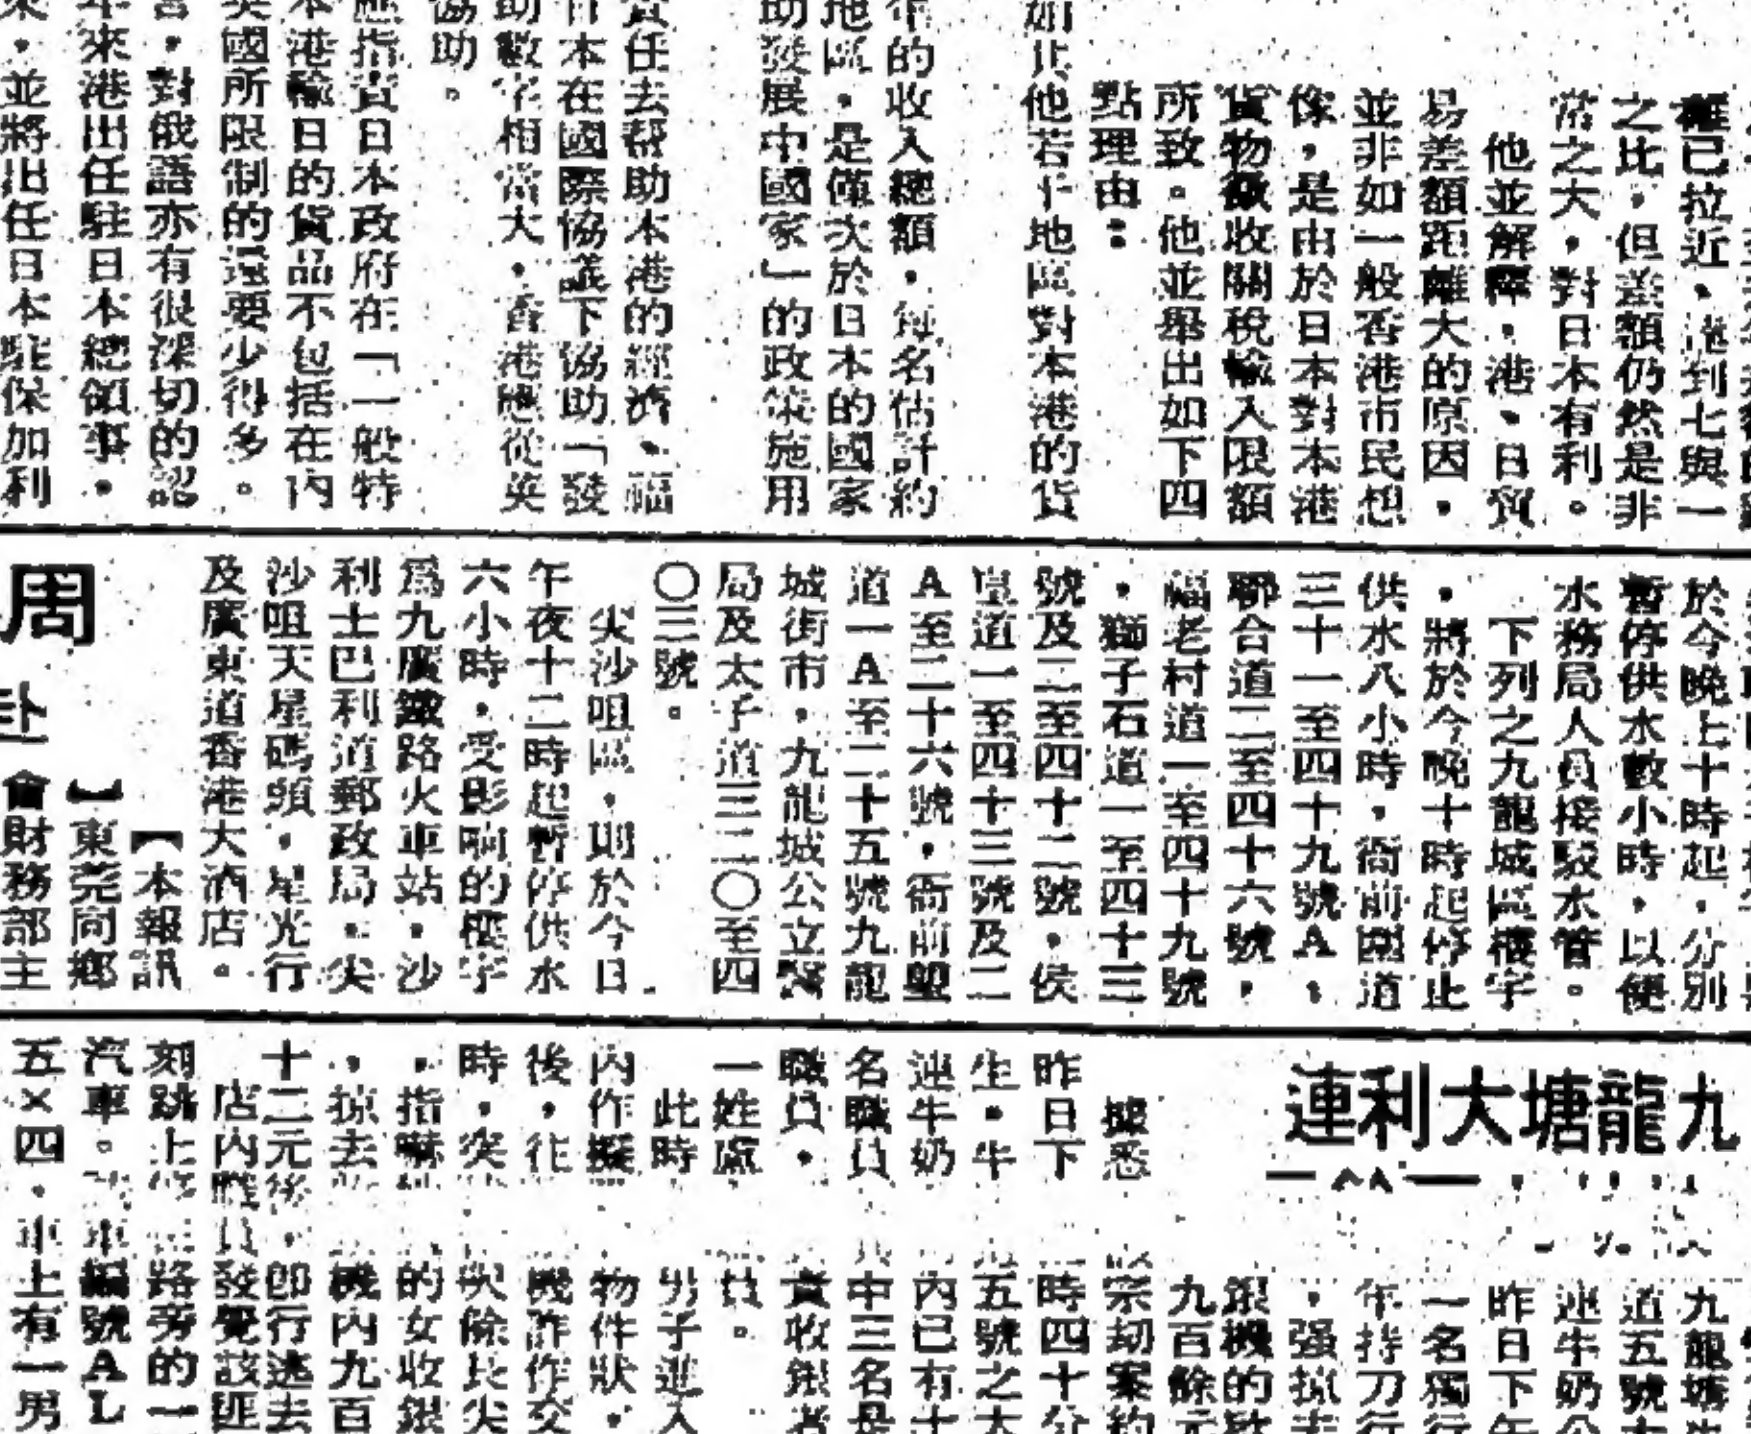 離已拉近、港到七與一
之比，但差額仍然是非
常之大，對日本有利。
他並解釋，港、日貿
易差額距離大的原因，
並非如一般香港市民想
像，是由於日本對本港
貨物徵收關稅輸入限額
所致。他並舉出如下四
點理由：
如其他若干地區對本港的貨
年的收入總額，每名估計約
地區，是僅次於日本的國家
助發展中國家」的政策施用
責任去帮助本港的經濟、福
日本在國際協議下協助「發
助數字相當大，香港應從英
協助。
應指責日本政府在「一般特
本港輸日的貨品不包括在內
英國所限制的還要少得多。
言，對俄語亦有很深切的認
年來港出任駐日本總領事，
來，並將出任日本駐保加利
於今晚上十時起，分別
暫停供水數小時，以便
水務局人員接駁水管。
下列之九龍城區樓宇
，將於今晚十時起停止
供水八小時，衙前圍道
三十一至四十九號A，
聯合道二至四十六號，
福老村道一至四十九號
，獅子石道一至四十三
號及二至四十二號，侯
皇道一至四十三號及二
A至二十六號，衙前塱
道一A至二十五號九龍
城街市，九龍城公立醫
局及太子道三二〇至四
〇三號。
尖沙咀區，則於今日
午夜十二時起暫停供水
六小時，受影响的樓宇
爲九廣鐵路火車站，沙
利士巴利道郵政局，尖
沙咀天星碼頭，星光行
及廣東道香港大酒店。
周
【本報訊
】東莞同鄉
會財務部主
九龍塘大利連
九龍塘
道五號
連牛奶公
昨日下午
一名獨行
年持刀行
，强掠去
銀機的
九百餘元
據悉
宗刧案約
昨日下
時四十分
生，牛
五號之大
連牛奶
內已有十
名職員
中三名是
職員，
責收銀者
一姓
員。
此時
男子進入
內作擬
物件狀，
後，往
機詐作交
時，突
，指嚇
的女收銀
，掠去
機內九百
十二元後，即行逃去
店內職員發覺該匪
刻跳上路旁的一
汽車。車編號AL
五×四，車上有一男